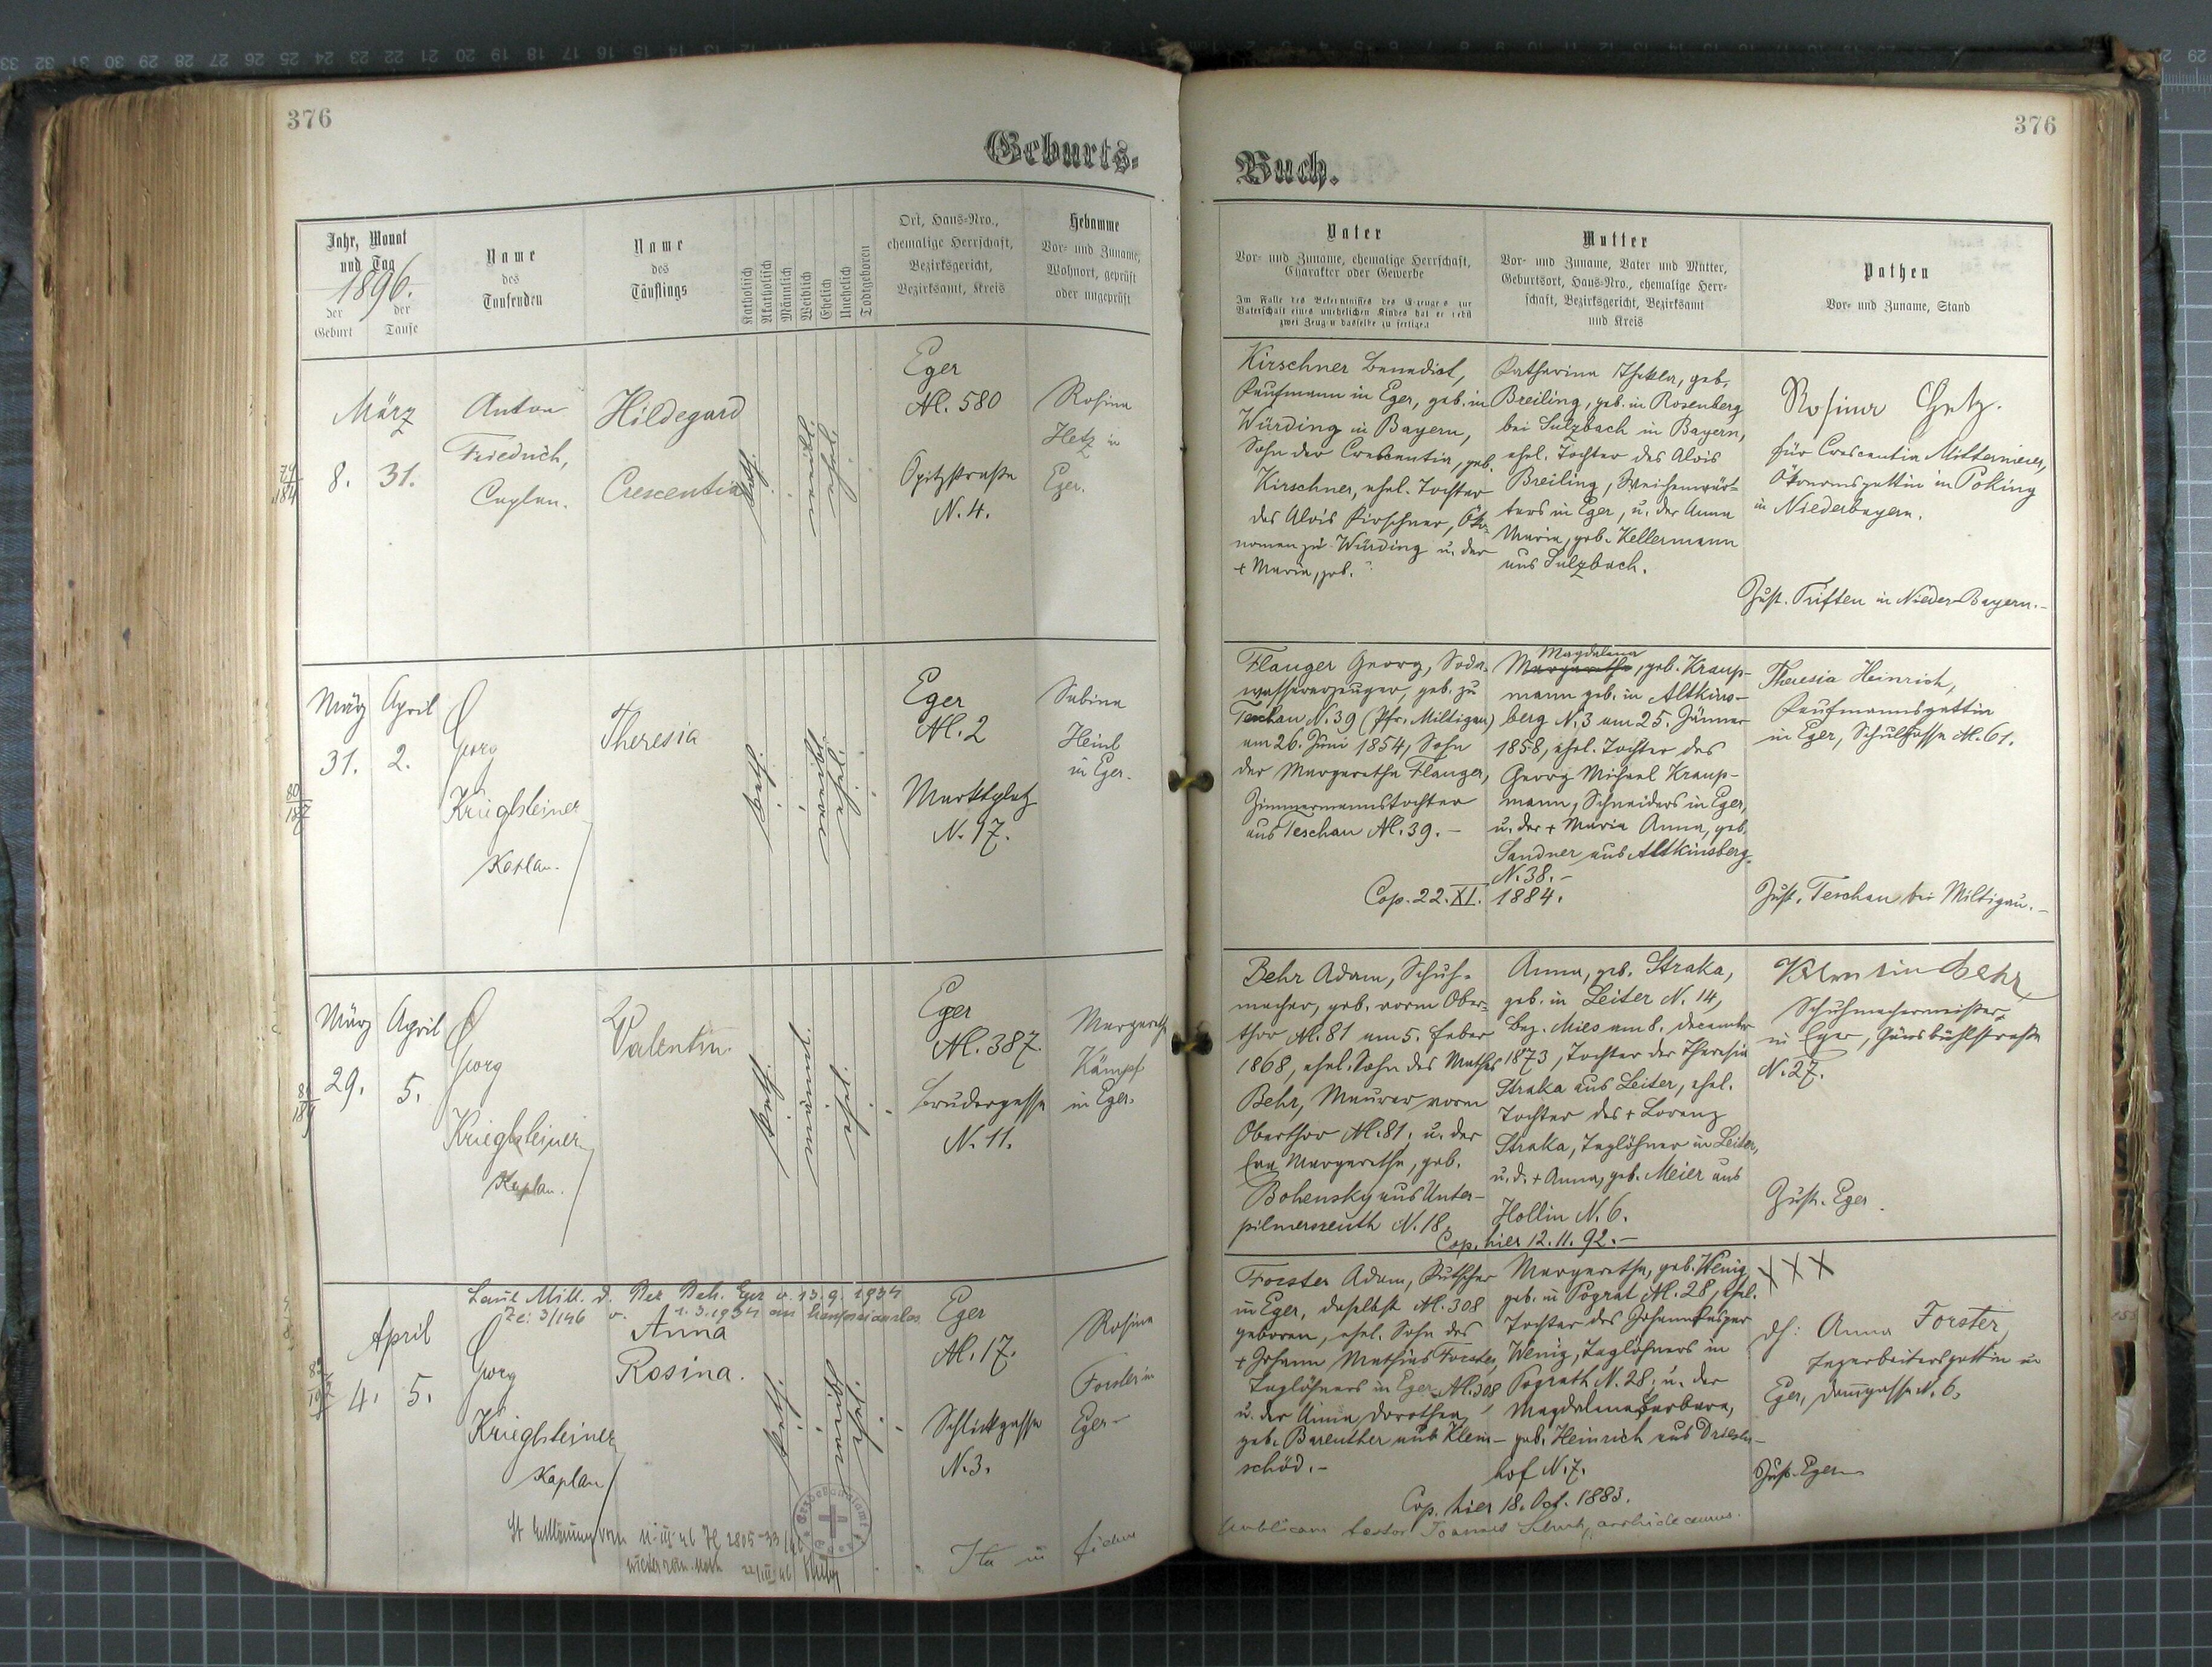 376
Geburts-
Jahr, Monat
und Tag
1896.
der Geburt
der Taufe
Name
des
Taufenden
Name
des
Täuflings
Katholisch
Akatholisch
Männlich
Weiblich
Ehelich
Unehelich
Todtgeboren
Ort, Haus-Nro.,
ehemalige Herrschaft,
Bezirksgericht,
Bezirksamt, Kreis
Hebamme
Vor- und Zuname,
Wohnort, geprüft
oder ungeprüft
März
8. 31.
Anton
Friedrich,
Caplan.
Hildegard
Crescentia
kath.
Eger
N. 580
Opitzstraße
N. 4.
Rosina
Hetz in
Eger.
März April
31. 2.
Georg
Krieglsteiner
Kaplan.
Theresia
kath.
Eger
N. 2
Marktplatz
N. 17.
Sabina
Heinl
in Eger.
März April
29. 5.
Georg
Krieglsteiner
Kaplan.
Valentin.
kath.
Eger
N. 387.
Brudergasse
N. 11.
Margareth
Kämpf
in Eger.
Laut Mitt. d. Bez. Beh. Eger v. 13.9.1934
Zl: 3/146 v. 1.3.1934 an konfessionslos
April
4. 5.
Georg
Krieglsteiner
Kaplan
Anna
Rosina.
kath.
Eger
N. 17.
Schlickgasse
N. 3.
Rosina
Forster in
Eger
Ita in fidem
376
Buch.
Vater
Vor- und Zuname, ehemalige Herrschaft,
Charakter oder Gewerbe
Im Falle des Bekenntnisses des Erzeugers zur
Vaterschaft eines unehelichen Kindes hat er nebst
zwei Zeugen dasselbe zu fertigen
Mutter
Vor- und Zuname, Vater und Mutter,
Geburtsort, Haus-Nro., ehemalige Herr-
schaft, Bezirksgericht, Bezirksamt
und Kreis
Pathen
Vor- und Zuname, Stand
Kirschner Benedict,
Kaufmann in Eger, geb. in
Würding in Bayern,
Sohn der Crescentia, geb.
Kirschner, ehel. Tochter
des Alois Kirschner, Öko-
nomen zu Würding u. der
+ Maria, geb. ?
Katharina Thekla, geb.
Breiling, geb. in Rosenberg
bei Sulzbach in Bayern,
ehel. Tochter des Alois
Breiling, Weichenwär-
ters in Eger, u. der Anna
Maria, geb. Kellermann
aus Sulzbach.
Rosina Hetz.
für Crescentia Mittermeier,
Ökonomsgattin in Poking
in Niederbayern.
Zust. Triften in Nieder-Bayern.-
Flauger Georg, Soda-
wassererzeuger, geb. zu
Teschau N. 39 (Pfr. Miltigau)
am 26. Juni 1854, Sohn
der Margaretha Flauger,
Zimmermannstochter
aus Teschau N. 39.-
Magdalena
Margaretha, geb. Kraup-
mann geb. in Altkins-
berg N. 3 am 25. Jänner
1858, ehel. Tochter des
Georg Michael Kraup-
mann, Schneiders in Eger,
u. der + Maria Anna, geb.
Sandner aus Altkinsberg
N. 38.-
Cop. 22. XI. 1884.
Theresia Heinrich,
Kaufmannsgattin
in Eger, Schulgasse N. 61.
Zust. Teschau bei Miltigau.-
Behr Adam, Schuh-
macher, geb. vorm Ober-
thor N. 81 am 5. Feber
1868, ehel. Sohn des Mathes
Behr, Maurer vorm
Oberthor N. 81, u. der
Eva Margaretha, geb.
Bohensky aus Unter-
pilmersreuth N. 18.
Anna, geb. Straka,
geb. in Leiter N. 14,
Bez. Mies am 8. December
1873, Tochter der Theresia
Straka aus Leiter, ehel.
Tochter des + Lorenz
Straka, Taglöhner in Leiter,
u. d. + Anna, geb. Meier aus
Hollin N. 6.
Cop. hier 12. 11. 92.-
Valentin Behr
Schuhmachermeister
in Eger,
N. 27.
Zust. Eger
Forster Adam, Kutscher
in Eger, daselbst N. 308
geboren, ehel. Sohn des
+ Johann Mathias Forster,
Taglöhners in Eger N. 308
u. der Anna Dorothea,
geb. Bareuther aus Klein-
schöd.-
Margaretha, geb. Wenig,
geb. in Pograt N. 28, ehel.
Tochter des Johann Kaspar
Wenig, Taglöhners in
Pograth N. 28, u. der
Magdalena Barbara,
geb. Heinrich aus
hof N. 7.
Cop. hier 18. Oct. 1883.
XXX
Anna Forster
gattin in
Eger, N. 6.
Zust. Eger